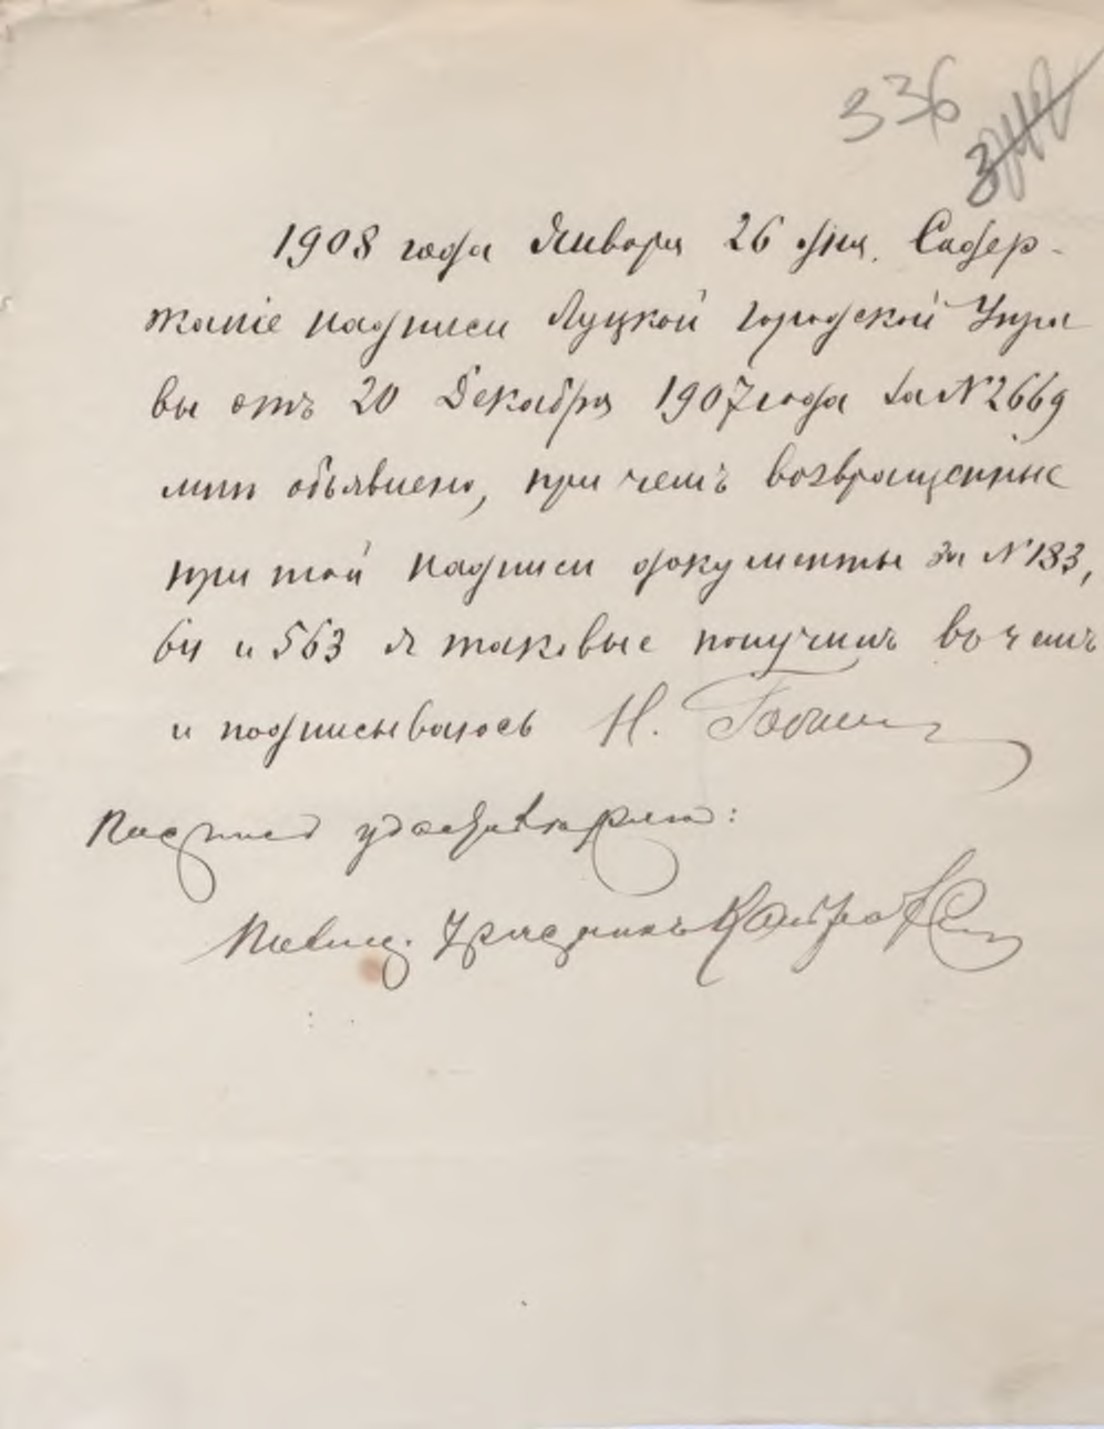 336
1908 года Января 26 дня. Содер-
жаніе надписи Луцкой Городской Упра
вы отъ 20 Декабря 1907 года за № 2669
мнѣ объявлено, при чемъ возвращенные
при той надписи документы за № 183,
64 и 563 я таковые получилъ въ чемъ
и подписываюсь Н.
Подпись удостовѣряю:
Полиц. Урядникъ